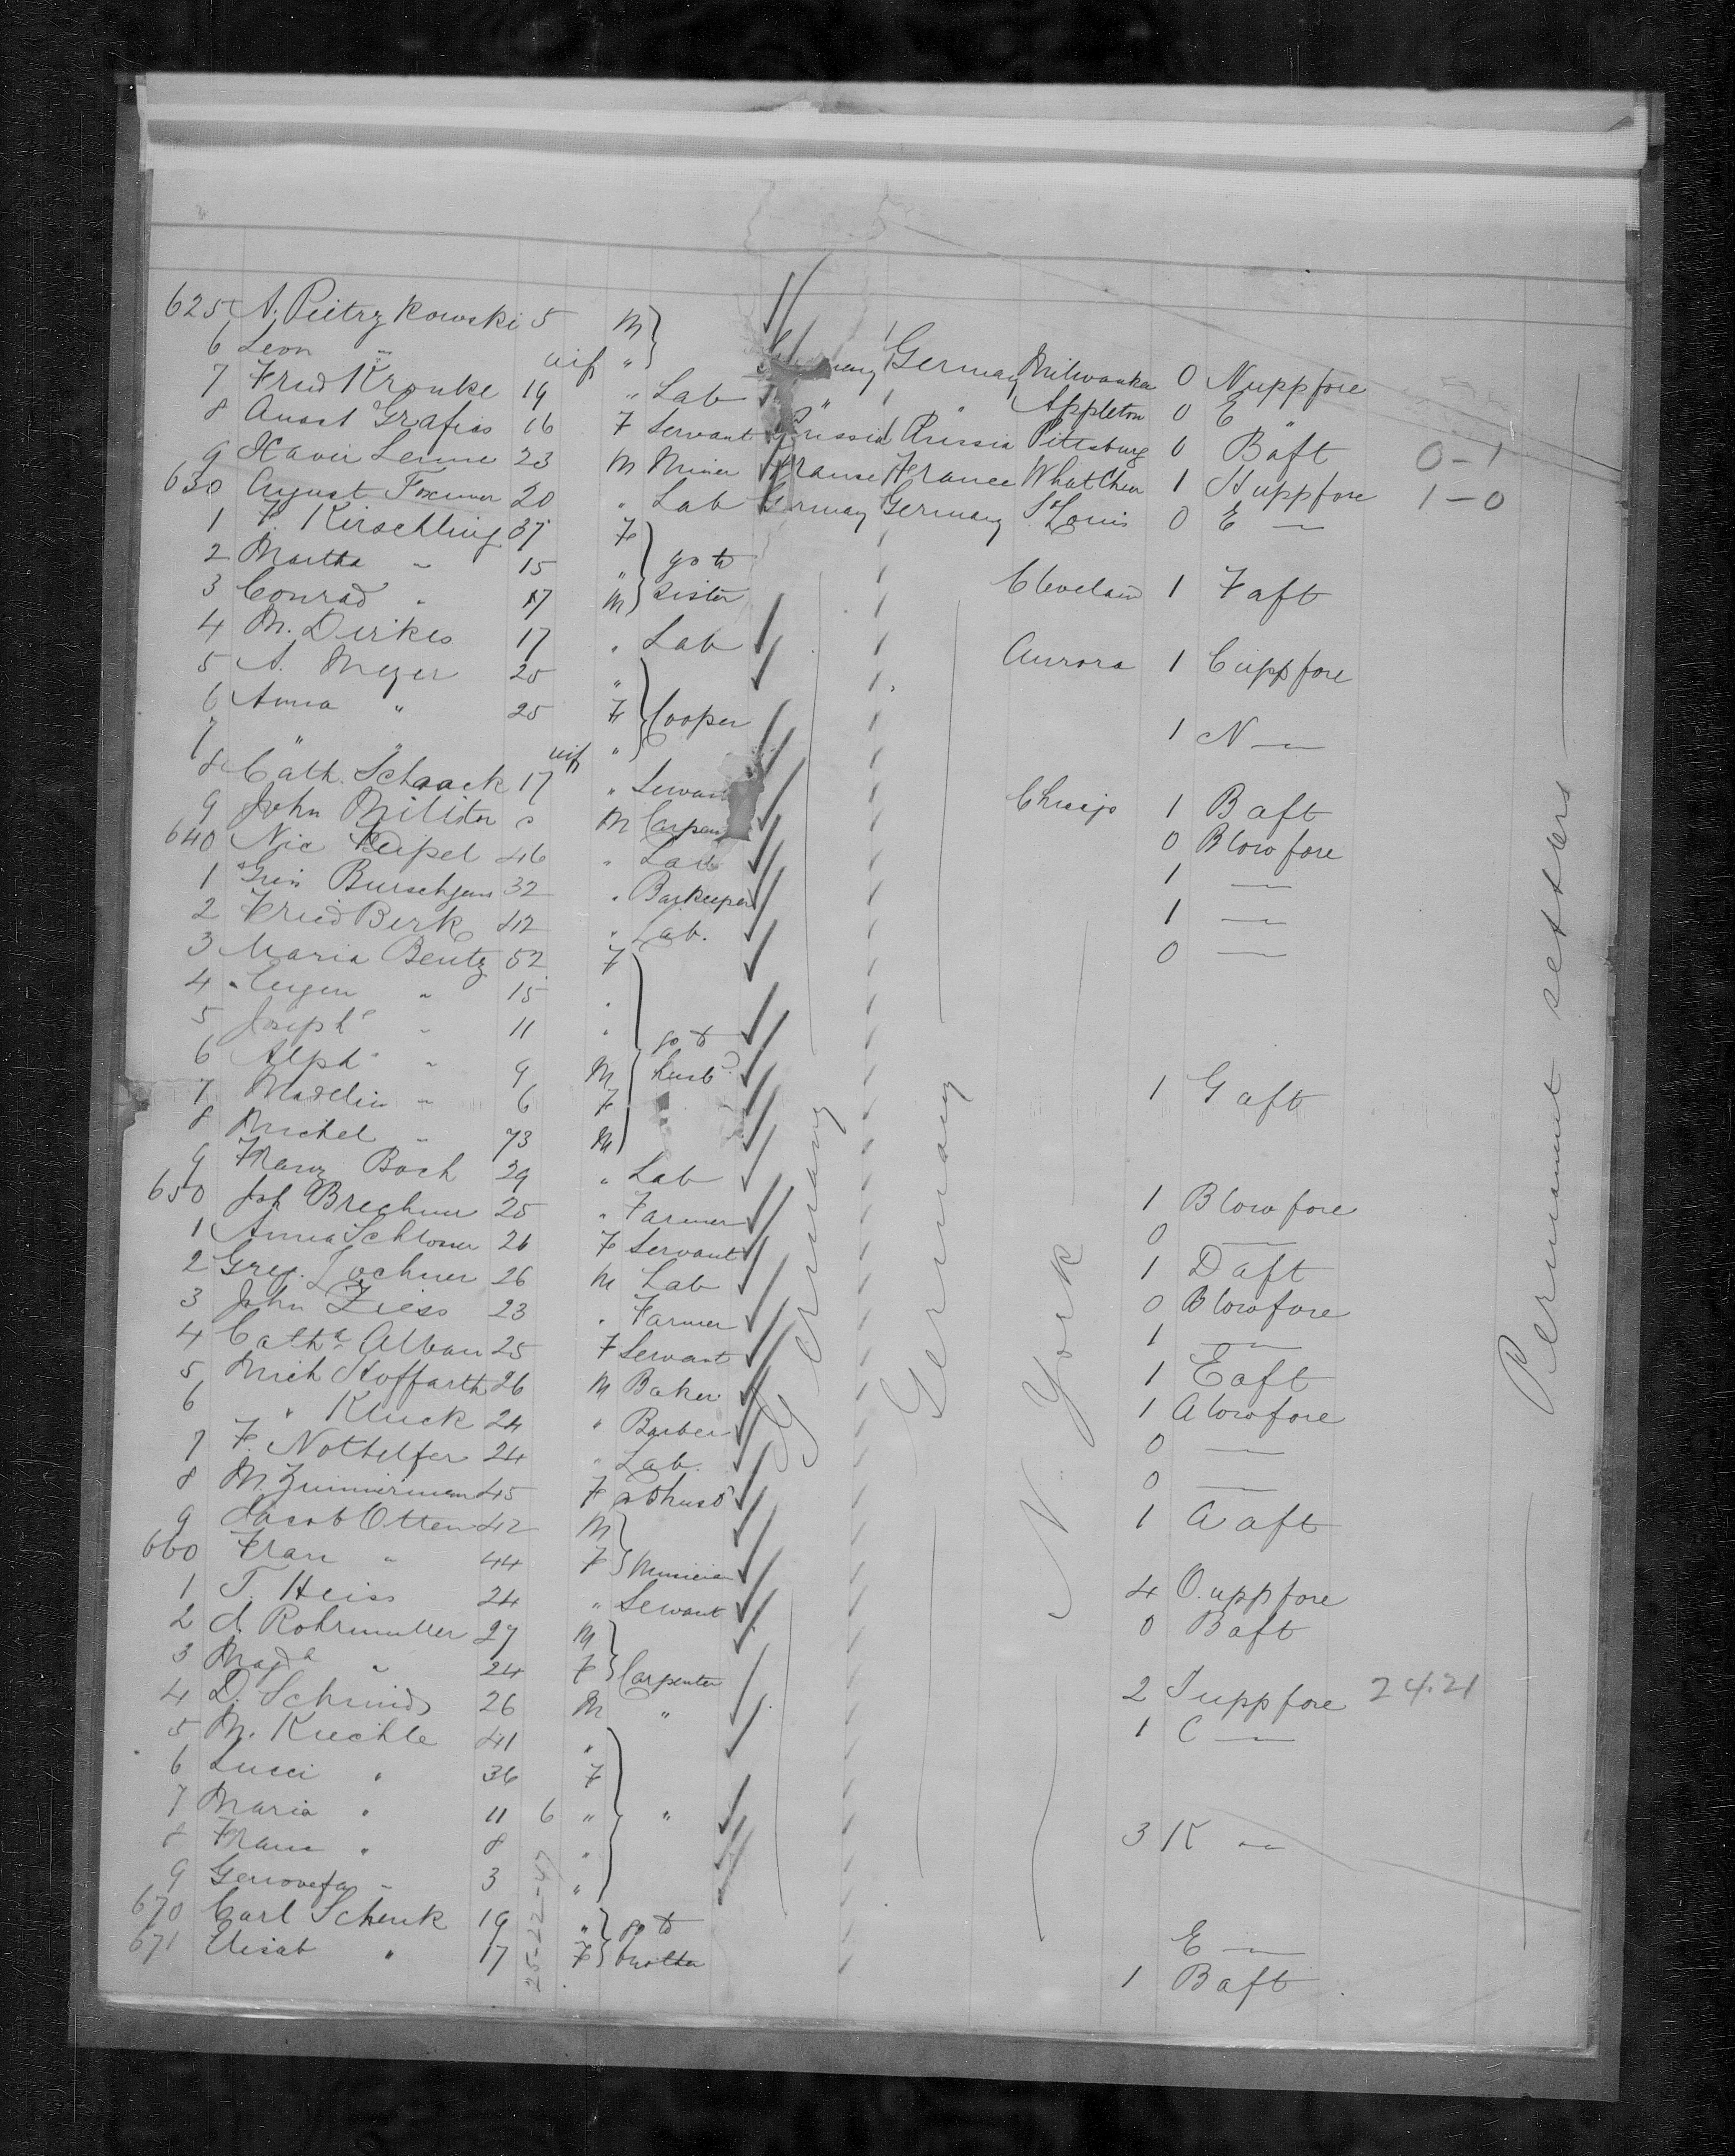 625 A. Pietrzkowski 5 M
6 Leon " inf " Germany Germany Milwaukee 0 N upp fore
7 Fred Kronke 19 " Lab " " Appleton 0 E "
8 Anast Grafias 16 F Servant Russia Russia Pittsburg 0 B aft 0-1
9 Xavir Lenne 23 M Miner France France What Cheer 1 H upp fore 1-0
630 August 20 " Lab Germany Germany St Louis 0 E "
1 F. Kirschling 37 F
2 Martha " 15 " go to
3 Conrad " 17 M sister Cleveland 1 F aft
4 M. Dirkes 17 " Lab Aurora 1 C upp fore
5 A. Meyer 25 "
6 Anna " 25 F Cooper 1 N "
7 " " inf "
8 Cath. Schaack 17 " Servant Chicago 1 B aft
9 John M Carpen 0 B low fore
640 Nic Keipel 46 " Lab 1 "
1 32 " Barkeeper 1 "
2 Fried Berk 42 " Lab. 0 "
3 Maria Bentz 52 F
4 Eugen " 15 "
5 Josephe " 11 " go to
6 Alph " 9 M husbd
7 Madelin " 6 F 1 G aft
8 Michel " 73 M
9 Franz Bock 29 " Lab 1 B low fore
650 Joh Brechner 25 " Farmer 0 "
1 Anna Schlosser 26 F Servant 1 D aft
2 Greg. Lochner 26 M Lab 0 B low fore
3 John Ziess 23 " Farmer 1 "
4 Catha Alban 25 F Servant 1 E aft
5 Mich Hoffarth 26 M Baker 1 A low fore
6 " Kluck 24 " Barber 0 "
7 F. Nothelfer 24 " Lab. 0 "
8 M. Zimmerman 45 F to husbd 1 A aft
9 Jacob Otten 42 M
660 Fran " 44 F Musician 4 O. upp fore
1 T. Heiss 24 " Servant 0 B aft
2 A. Rohrmuller 27 M
3 Magda " 24 F Carpenter 2 J upp fore 24.21
4 D. Schmid 26 M " 1 C "
5 M. Kuchle 41 "
6 Lucci " 36 F
7 Maria " 11 6 " " 3 K "
8 Franc " 8 "
9 Genovefa " 3 "
670 Carl Schenk 19 " go to E "
671 Elisab " 17 F brother 1 B aft
Germany
Germany
N. York
Permanent settlers
25-22-47